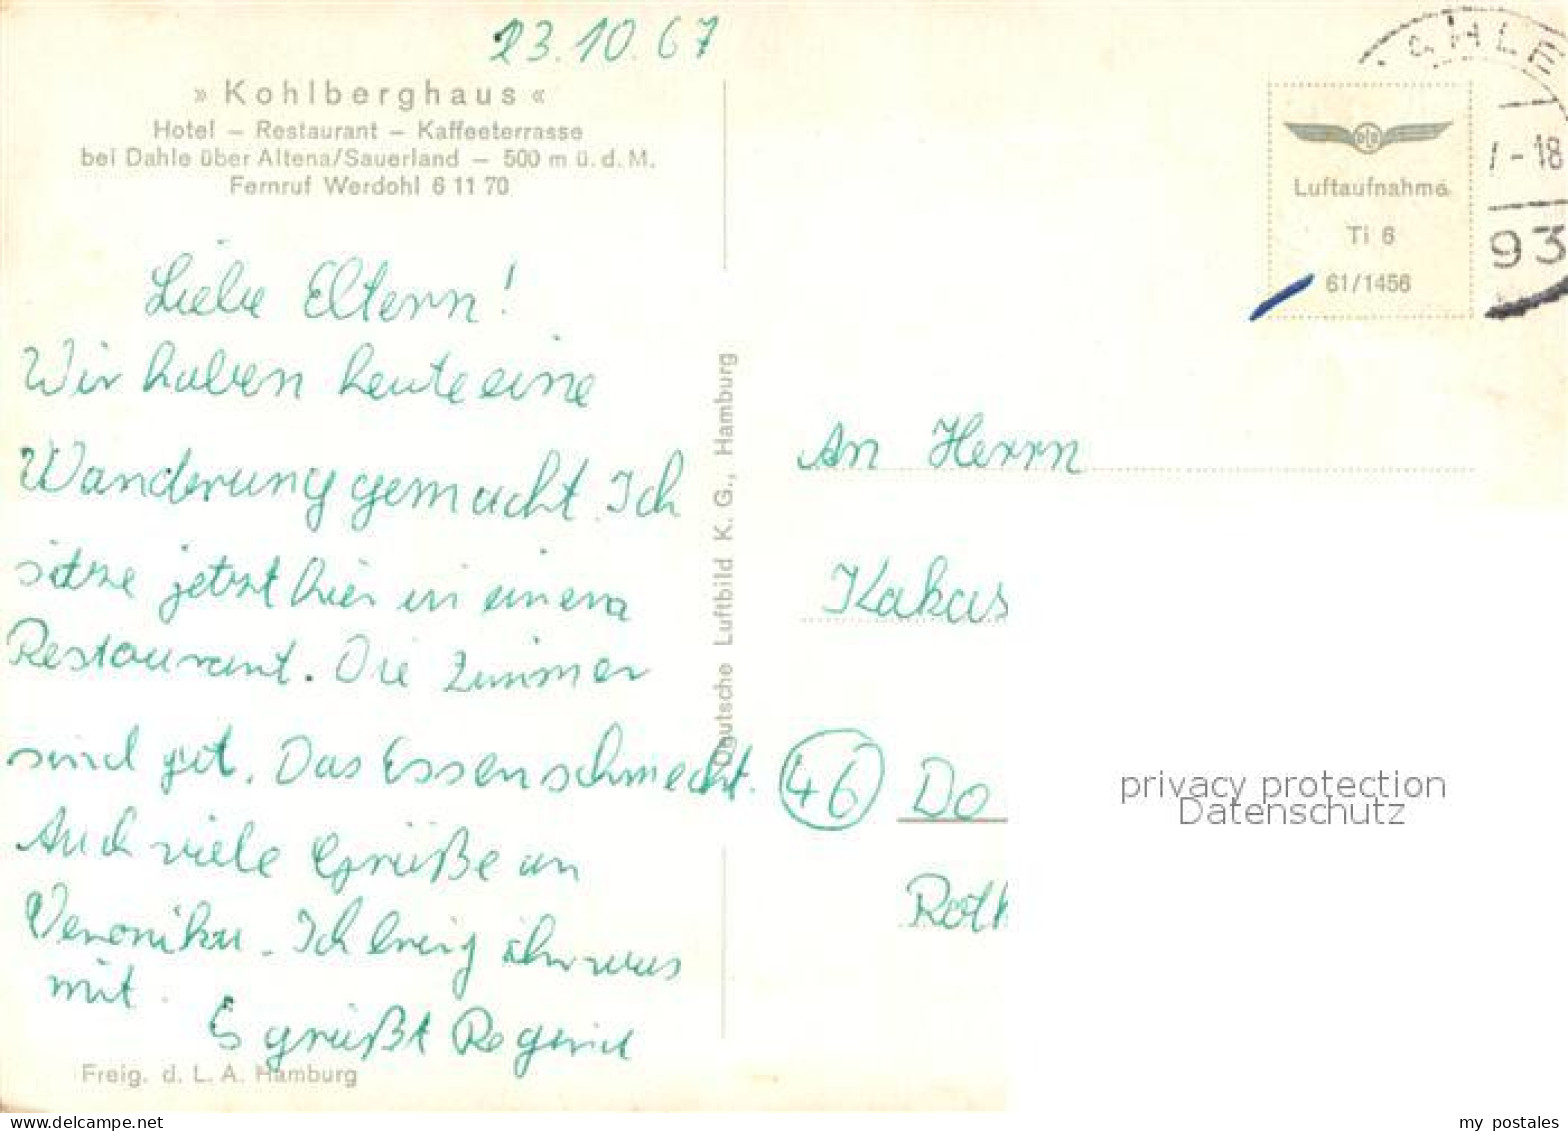 23.10.67
» Kohlberghaus «
Hotel – Restaurant – Kaffeeterrasse
bei Dahle über Altena/Sauerland – 500 m ü. d. M.
Fernruf Werdohl 6 11 70
Liebe Eltern!
Wir haben heute eine
Wanderung gemacht. Ich
sitze jetzt hier in einem
Restaurant. Die Zimmer
sind gut. Das Essen schmeckt.
Auch viele Grüße an
Veronika. Ich bring ihr was
mit.
Es grüßt
Freig. d. L. A. Hamburg
Deutsche Luftbild K. G., Hamburg
AHLE
- 18
93
Luftaufnahme
Ti 6
61/1456
An Herrn
Kakus
46 Do
Roth
privacy protection
Datenschutz
my postales